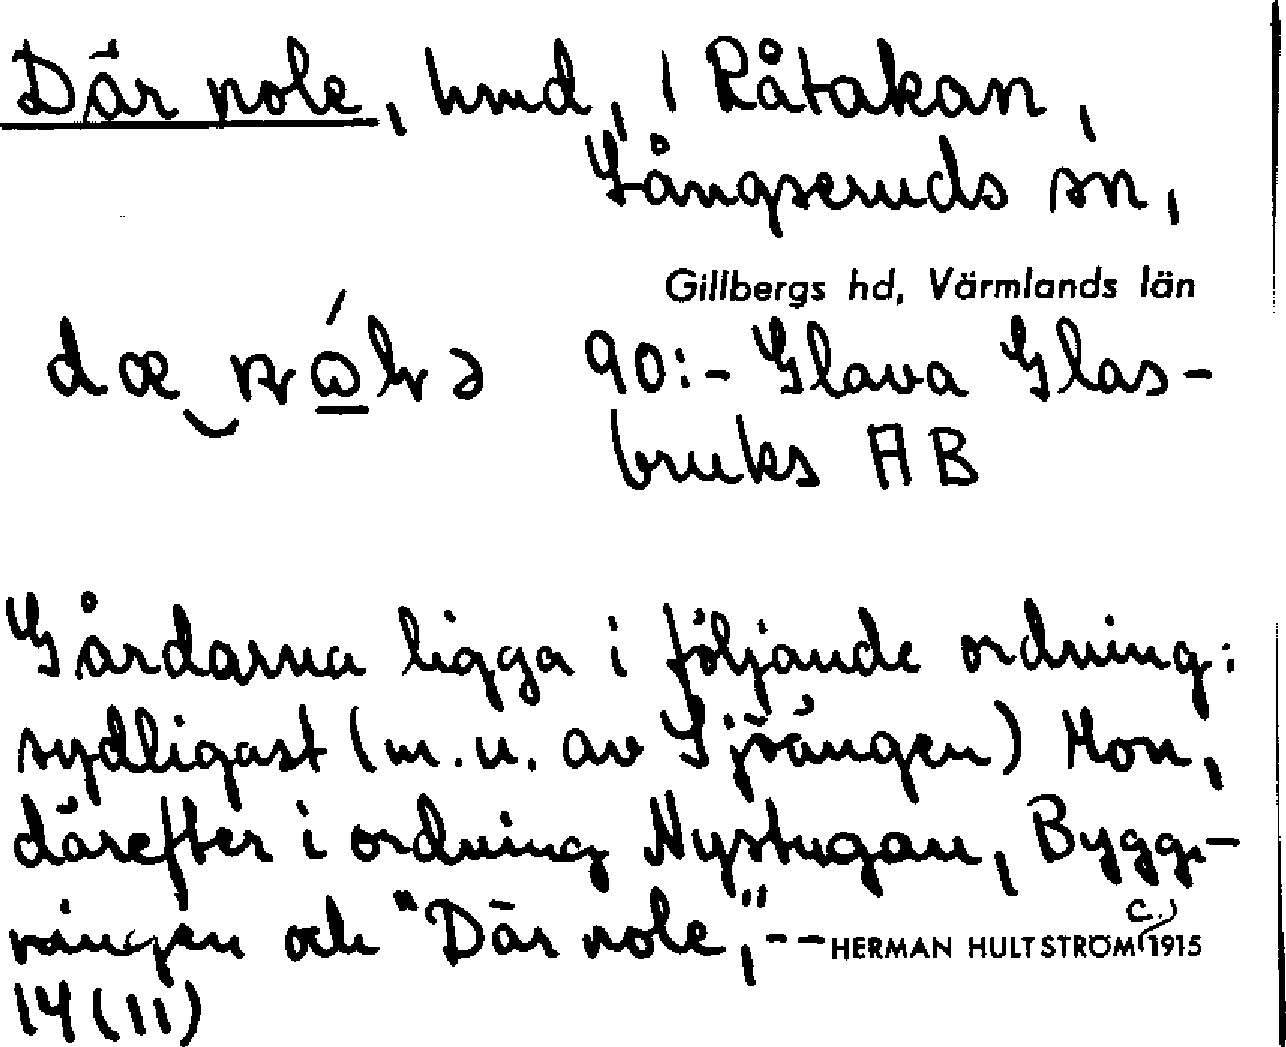 Där nole, hmd, i Råtakan,
Långseruds sn,
Gillbergs hd, Värmlands län
90:- Glava Glas-
bruks AB
Gårdarna ligga i följande ordning:
sydligast (m. u. av Sjöängen) Mon,
därefter i ordning Nystugan, Bygg-
ningen och "Där nole," -- HERMAN HULTSTRÖM c.) 1915
14 (11)